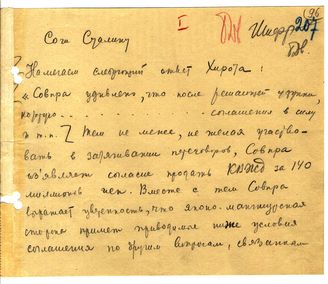 I ДК Шифр 207
Сочи Сталину
Намечаем следующий ответ Хирота:
"Совпра удивлено, что после решающей уступки,
которую . . . . . . . . . . соглашения в силу
и т.п. Тем не менее, не желая участво-
вать в затягивании переговоров, Совпра
изъявляет согласие продать КВЖД за 140
миллионов иен. Вместе с тем Совпра
выражает уверенность, что японо-манчжурская
сторона примет приводимые ниже условия
соглашения по другим вопросам, связанным